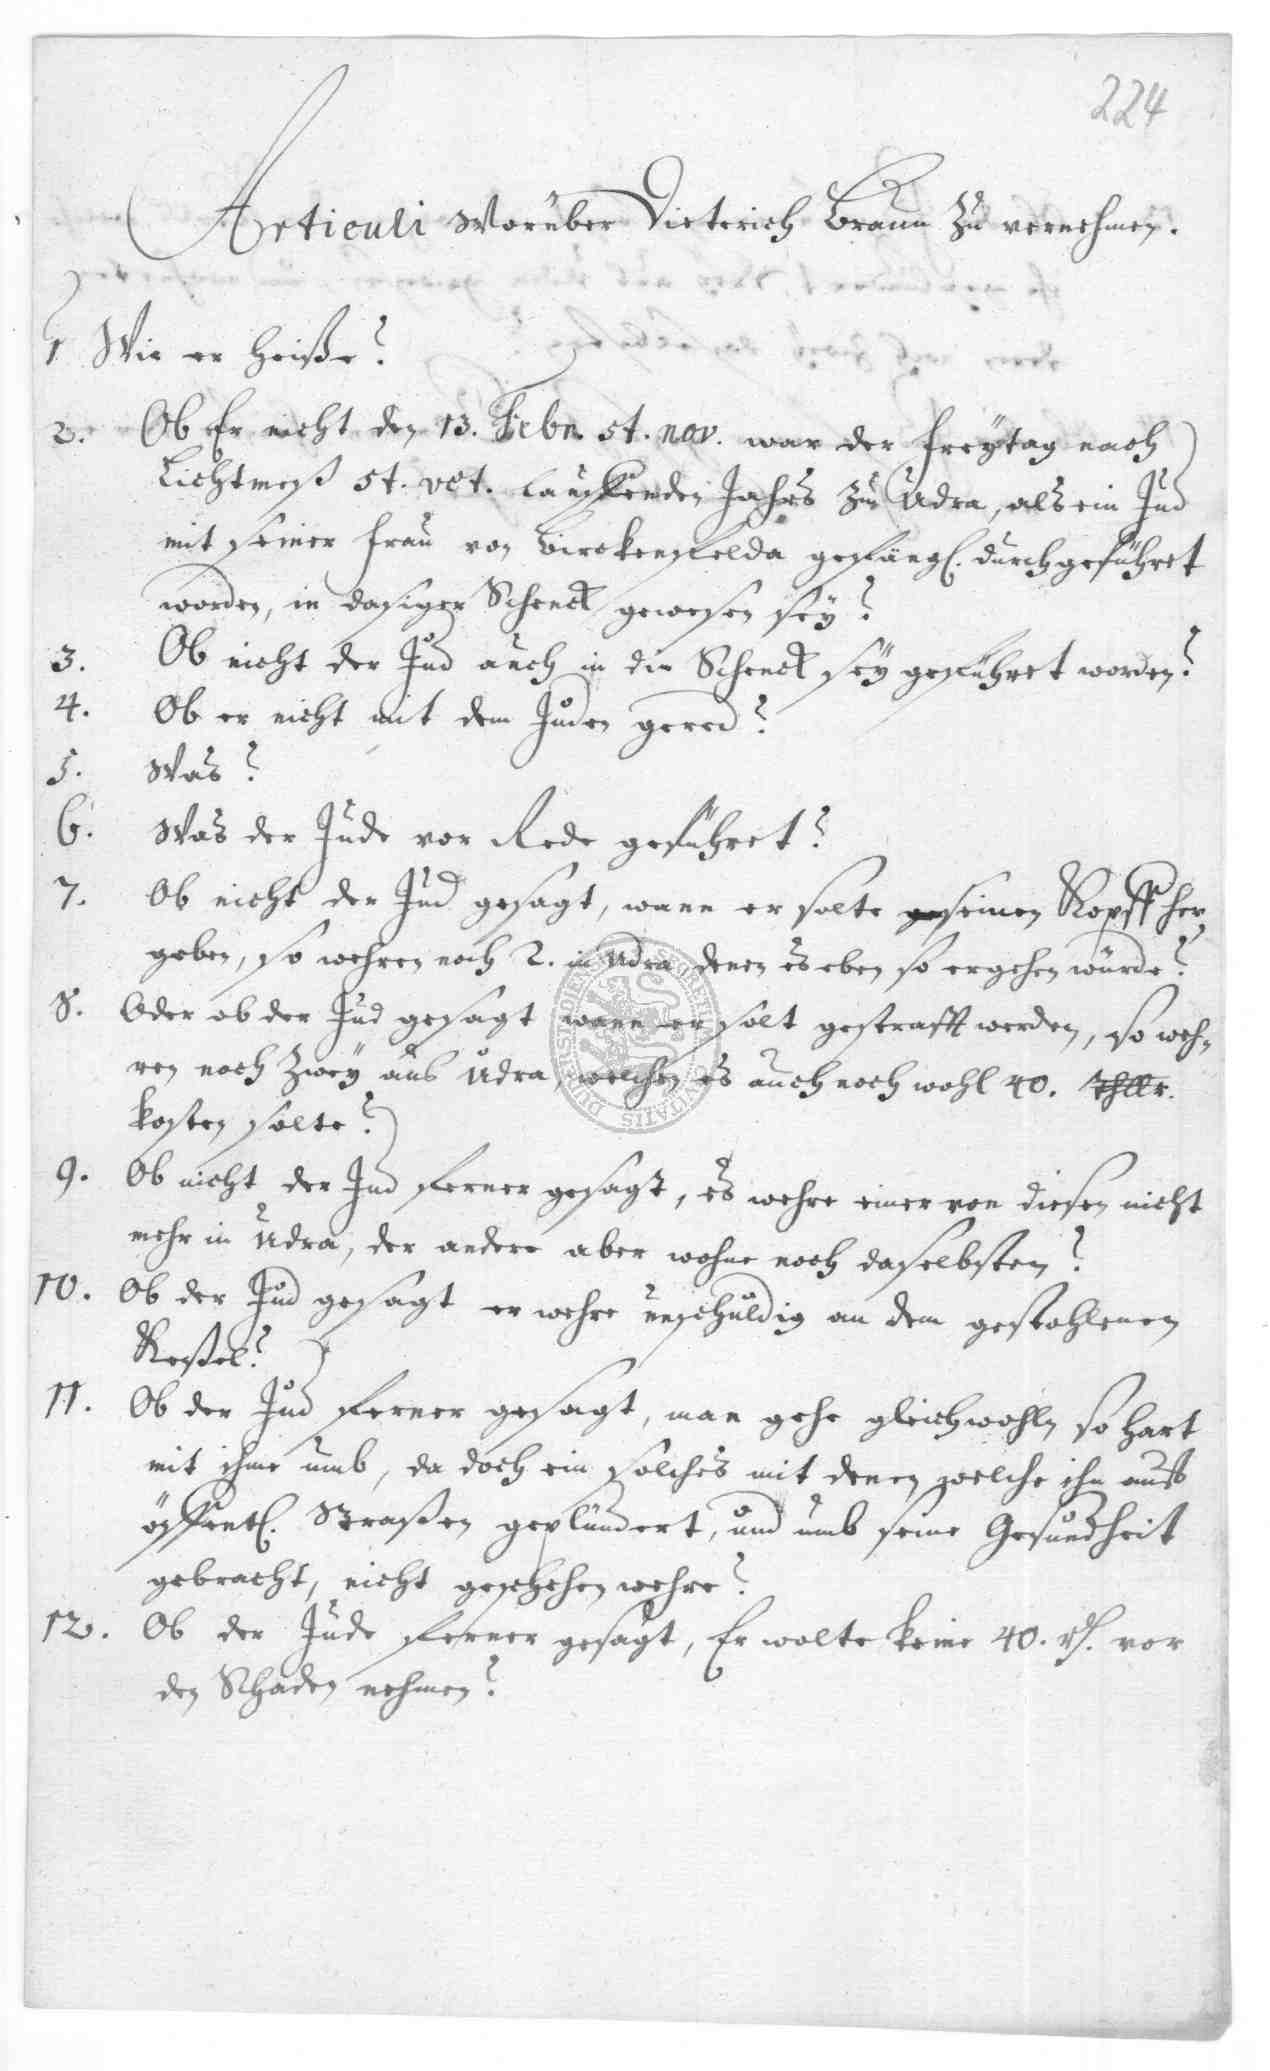 224
Articuli Worüber Dieterich Braun zu vernehmen.
1 Wie er heiße?
2. Ob Er nicht den 13. Febr. st. nov. war der freytag nach
Lichtmeß st. vet. lauffenden Jahrs zu Udra, als ein Jud
mit seiner frau von Birckenfelda gefängl. durchgeführet
worden, in dasiger Schenck gewesen sey?
3. Ob nicht der Jud auch in die Schenck sey geführet worden?
4. Ob er nicht mit dem Juden gered?
5. Was?
6. Was der Jude vor Rede geführet?
7. Ob nicht der Jud gesagt, wann er solte seinen Kopff her
geben, so wehren noch 2. in Udra denen es eben so ergehen würde?
8. Oder ob der Jud gesagt wann er solt gestrafft werden, so weh-
ren noch zwey aus Udra, welchen es auch noch wohl 40. thllr.
kosten solte?
9. Ob nicht der Jud ferner gesagt, es wehre einer von diesen nicht
mehr in Udra, der andere aber wohne noch daselbsten?
10. Ob der Jud gesagt er wehre unschuldig an dem gestohlenen
Keßel?
11. Ob der Jud ferner gesagt, man gehe gleichwohln so hart
mit ihme umb, da doch ein solches mit denen welche ihn auff
öffentl. Straßen geplündert, und umb seine Gesundheit
gebracht, nicht geschehen wehre?
12. Ob der Jude ferner gesagt, Er wolte keine 40. rh. vor
den Schaden nehmen?